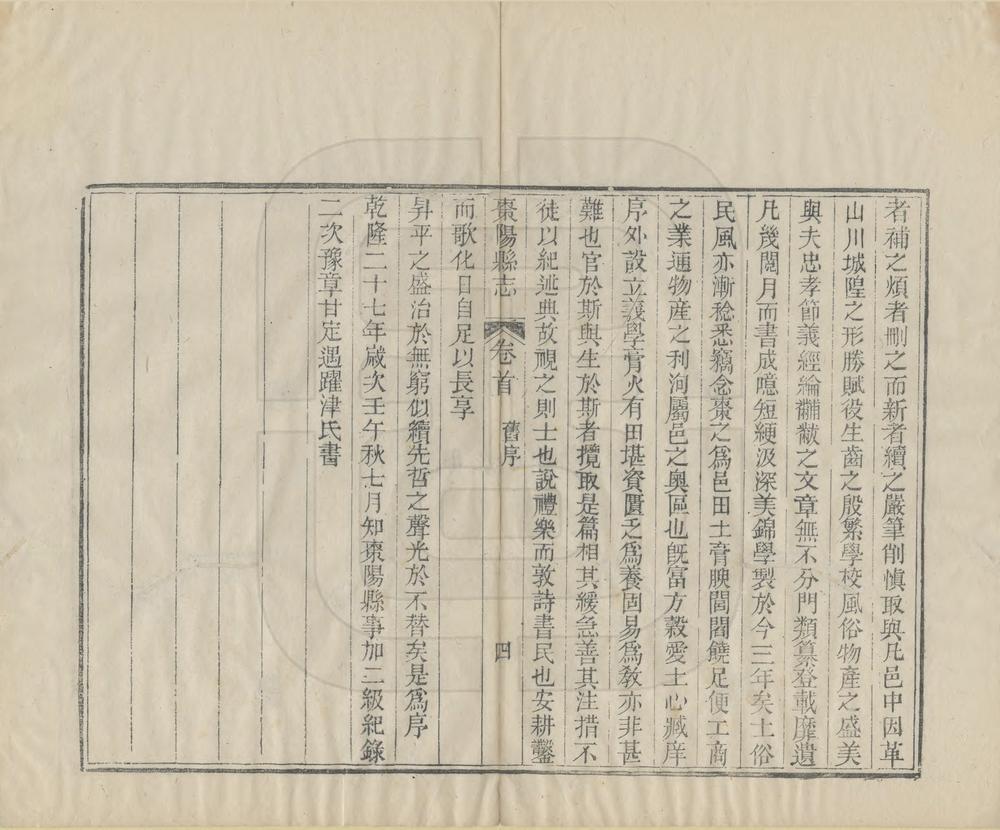 者補之煩者刪之而新者續之嚴筆削慎取與凡邑中因革
山川城隍之形勝賦役生齒之殷繁學校風俗物產之盛美
與夫忠孝節義經綸黼黻之文章無不分門類纂登載靡遺
凡幾閱月而書成噫短綆汲深美錦學製於今三年矣土俗
民風亦漸稔悉竊念棗之為邑田土膏腴閭閻饒足便工商
之業通物產之利洵屬邑之奧區也旣富方穀愛士心臧庠
序外設立義學膏火有田堪資匱乏為養固易為教亦非甚
難也官於斯與生於斯者攬取是篇相其緩急善其注措不
徒以紀述典故視之則士也說禮樂而敦詩書民也安耕鑿
棗陽縣志 卷首 舊序 四
而歌化日自足以長享
昇平之盛治於無窮似續先哲之聲光於不替矣是為序
乾隆二十七年歲次壬午秋七月知棗陽縣事加二級紀錄
二次豫章甘定遇躍津氏書